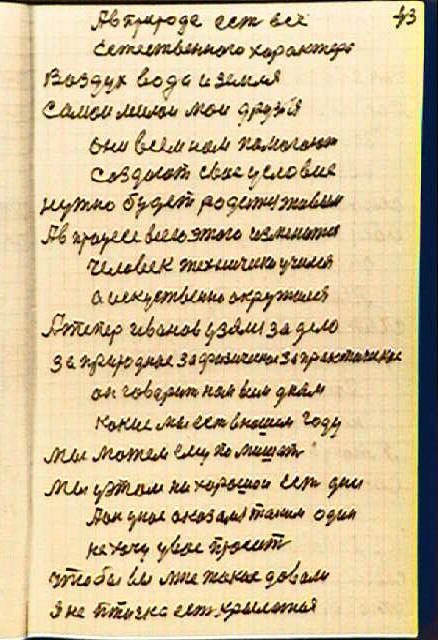 43
Ав природе ест все
Естественного характера
Воздух вода и земля
Самои милои мои друзья
они всем нам помогают
создают свое условие
нужно будет родется живым
Ав процесе всего этого
Человек технически учился
а искуственно окружался
Атепер иванов узялся за дело
за природное за физическое за практическое
он говорит нам всем дням
какие мы ест в нашем году
мы можем ему помешать
мы узтом ни хорошои ест дни
таким один
не хочу у вас просит
чтобы вы мне такое довали
я не птизка ест крылотая